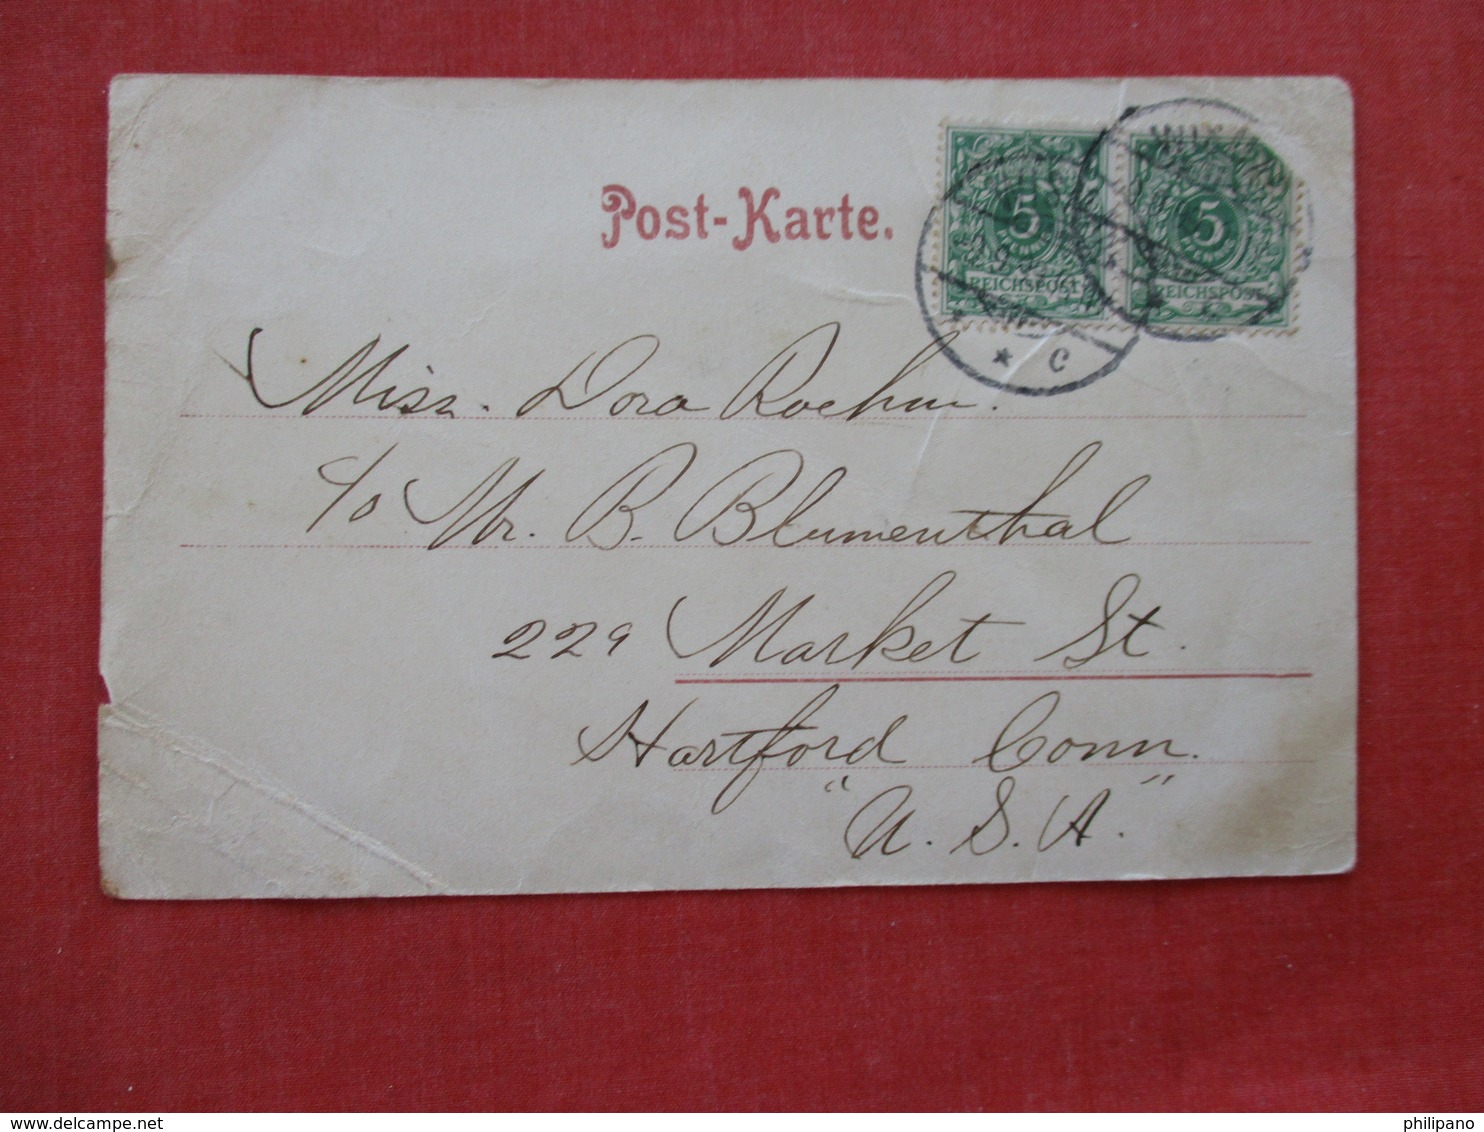 Post-Karte.
5 5
REICHSPOST REICHSPOST
* c
Miss. Dora Roehm.
c/o Mr. B. Blumenthal
229 Market St.
Hartford Conn.
"U. S. A."
philipano